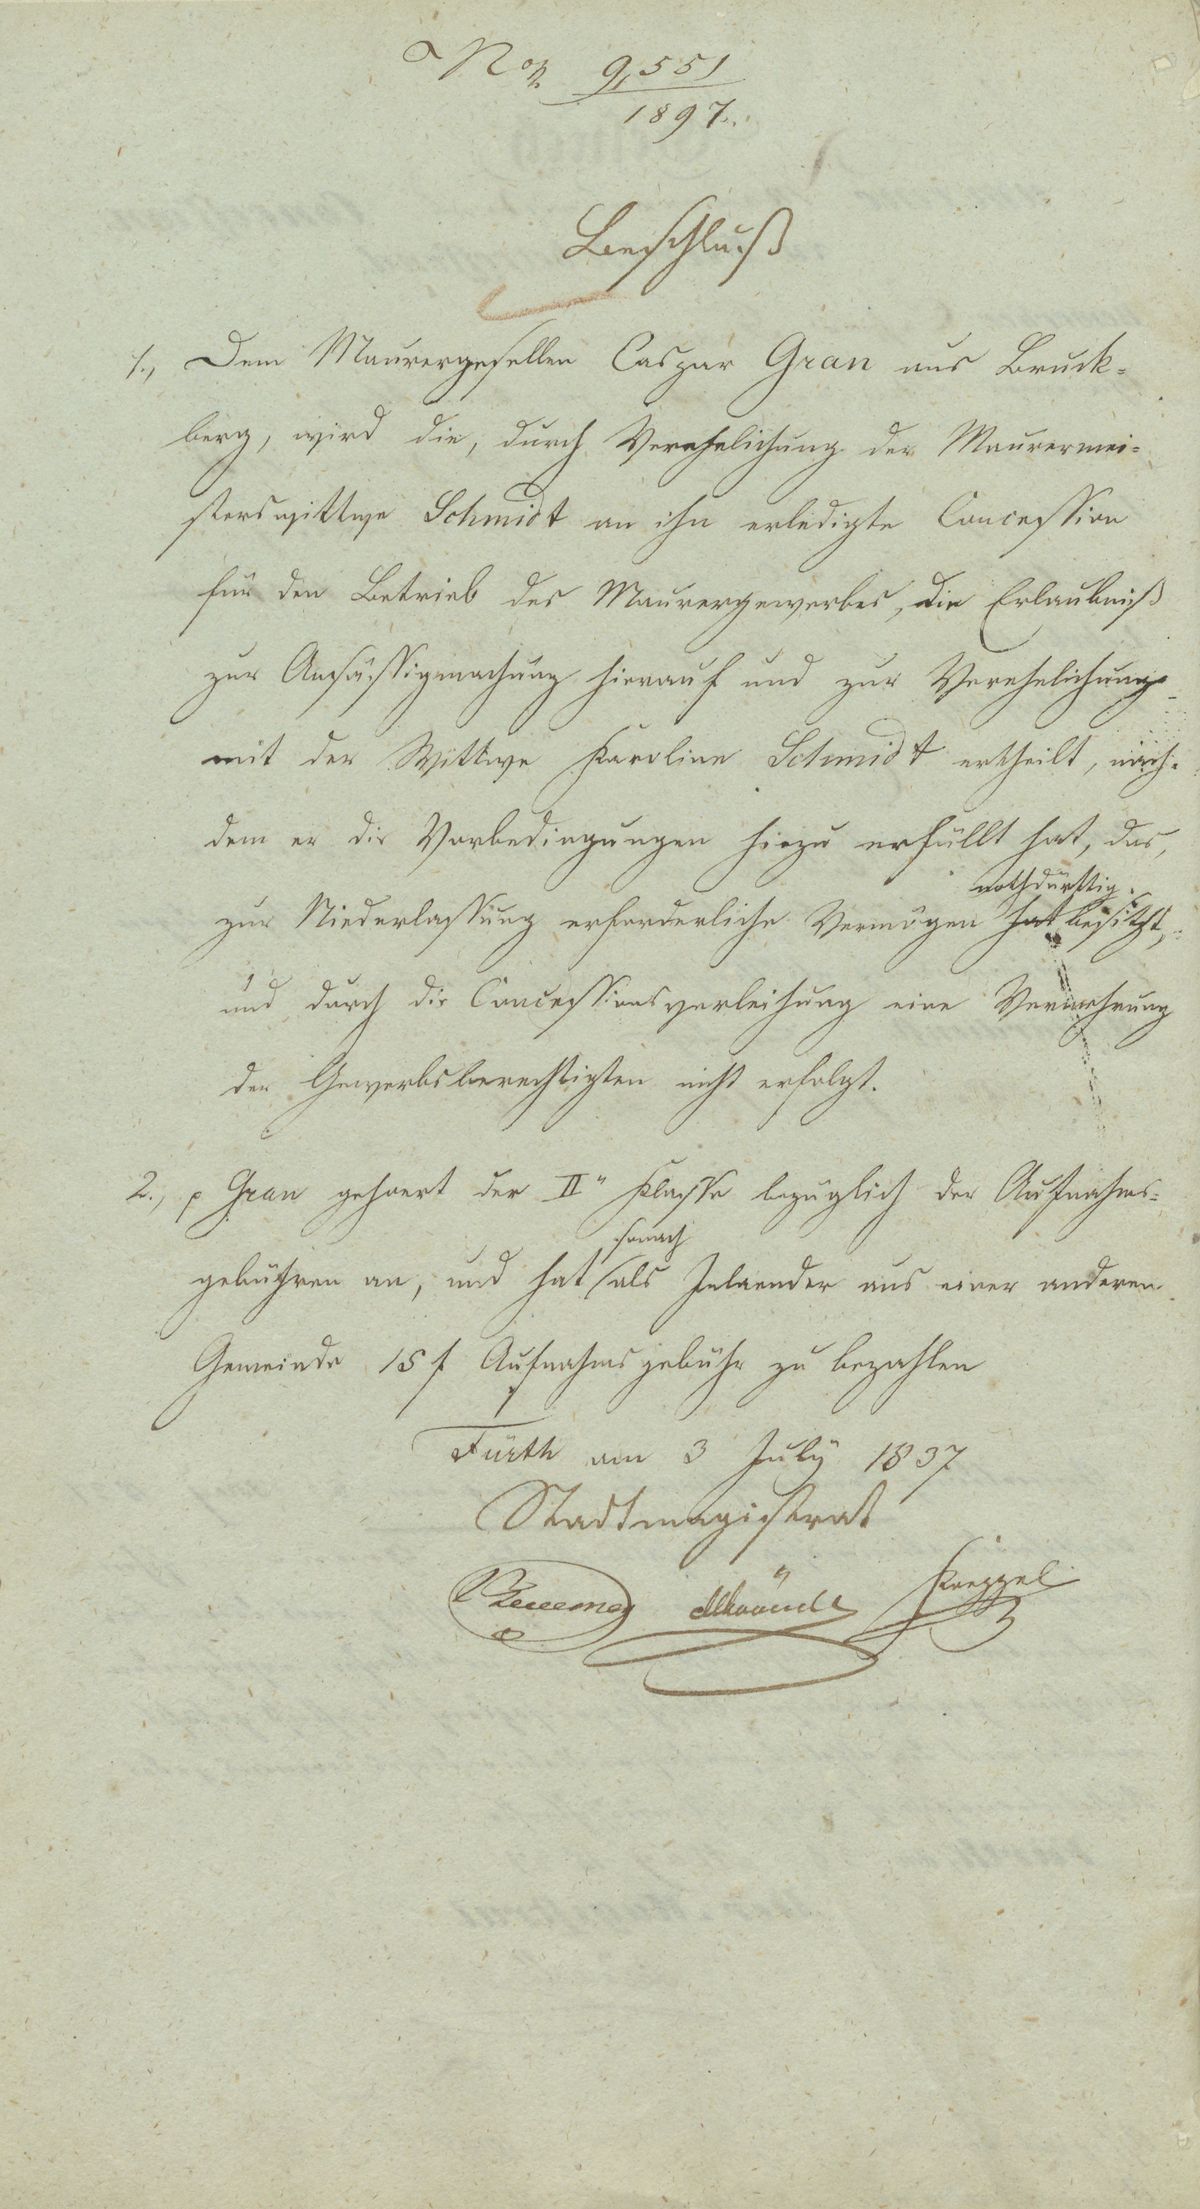 No 9,551
1897.
Beschluß
1., Dem Maurergesellen Caspar Gran aus Bruck-
berg, wird die, durch Verehelichung der Maurermei-
sterswittwe Schmidt an ihn erledigte Concession
für den Betrieb des Maurergewerbes, die Erlaubniß
zur Ansäßigmachung hierauf und zur Verehelichung
mit der Wittwe Karoline Schmidt ertheilt, nach-
dem er die Vorbedingungen hiezu erfüllt hat, das,
nothdürftig
zur Niederlassung erforderliche Vermögen hat besitzt,
und durch die Concessionsverleihung eine Vermehrung
der Gewerbsberechtigten nicht erfolgt.
2., p Gran gehoert der II" Klasse bezüglich der Aufnahms-
sonach
gebühren an, und hat als Inlaender aus einer anderen
Gemeinde 15 f Aufnahmsgebühr zu bezahlen
Fürth am 3 July 1837
Stadtmagistrat
Kreppel